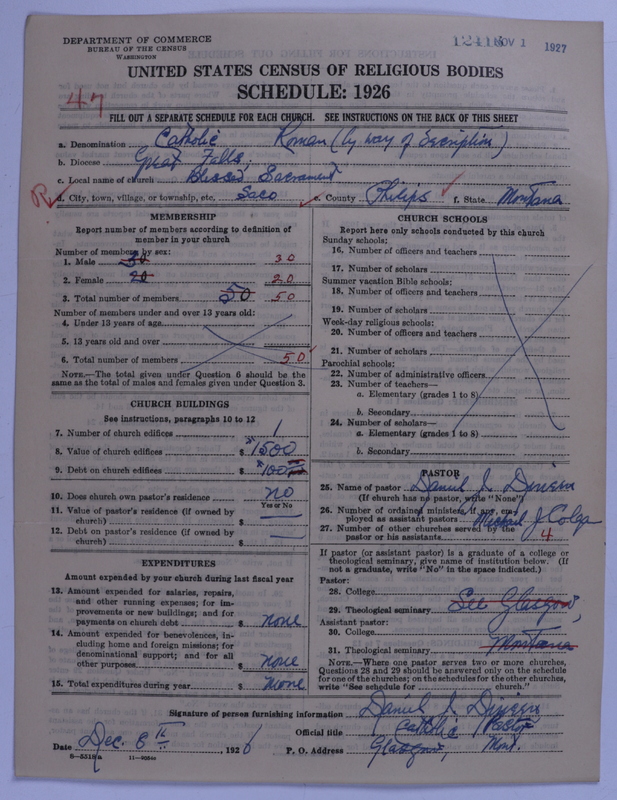 DEPARTMENT OF COMMERCE
BUREAU OF THE CENSUS
WASHINGTON
NOV 1 1927
UNITED STATES CENSUS OF RELIGIOUS BODIES
SCHEDULE: 1926
47
FILL OUT A SEPARATE SCHEDULE FOR EACH CHURCH. SEE INSTRUCTIONS ON THE BACK OF THIS SHEET
a. Denomination Catholic Roman (by way of
b. Diocese Great Falls,
c. Local name of church Blessed Sacrament
R d. City, town, village, or township, etc. Saco e. County Philips f. State Montana
MEMBERSHIP
Report number of members according to definition of
member in your church
Number of members by sex:
1. Male 30 30
2. Female 20 20
3. Total number of members 50 50
Number of members under and over 13 years old:
4. Under 13 years of age
5. 13 years old and over
6. Total number of members 50
NOTE.—The total given under Question 6 should be the
same as the total of males and females given under Question 3.
CHURCH BUILDINGS
See instructions, paragraphs 10 to 12
7. Number of church edifices 1
8. Value of church edifices $ 1500
9. Debt on church edifices $
10. Does church own pastor's residence no
Yes or No
11. Value of pastor's residence (if owned by
church) $
12. Debt on pastor's residence (if owned by
church) $
EXPENDITURES
Amount expended by your church during last fiscal year
13. Amount expended for salaries, repairs,
and other running expenses; for im-
provements or new buildings; and for
payments on church debt $ none
14. Amount expended for benevolences, in-
cluding home and foreign missions; for
denominational support; and for all
other purposes $ none
15. Total expenditures during year $ none
CHURCH SCHOOLS
Report here only schools conducted by this church
Sunday schools:
16. Number of officers and teachers
17. Number of scholars
Summer vacation Bible schools:
18. Number of officers and teachers
19. Number of scholars
Week-day religious schools:
20. Number of officers and teachers
21. Number of scholars
Parochial schools:
22. Number of administrative officers
23. Number of teachers—
a. Elementary (grades 1 to 8)
b. Secondary
24. Number of scholars—
a. Elementary (grades 1 to 8)
b. Secondary
PASTOR
25. Name of pastor Daniel J.
(If church has no pastor, write "None")
26. Number of ordained ministers, if any, em-
ployed as assistant pastors Michael J.
27. Number of other churches served by the
pastor or his assistants 4
If pastor (or assistant pastor) is a graduate of a college or
theological seminary, give name of institution below. (If
not a graduate, write "No" in the space indicated.)
Pastor:
28. College
29. Theological seminary See Glasgow,
Assistant pastor:
30. College
31. Theological seminary Montana
NOTE.—Where one pastor serves two or more churches,
Questions 28 and 29 should be answered only on the schedule
for one of the churches; on the schedules for the other churches,
write "See schedule for church."
Signature of person furnishing information Daniel J.
Official title Catholic Pastor
Date Dec. 8th, 1926 P. O. Address Glasgow, Mont.